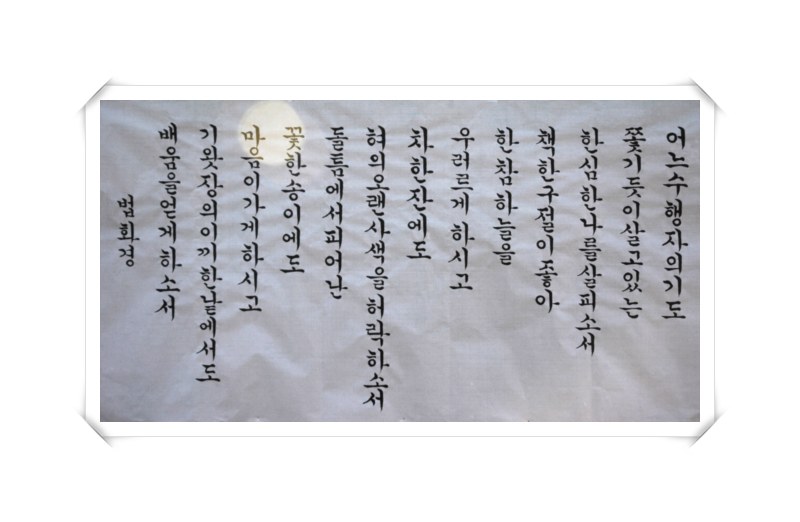 어느수행자의기도
쫓기듯이살고있는
한심한나를살피소서
책한구절이좋아
한참하늘을
우러르게하시고
차한잔에도
혀의오랜사색을허락하소서
돌틈에서피어난
꽃한송이에도
마음이가게하시고
기왓장의이끼한낱에서도
배움을얻게하소서
법화경